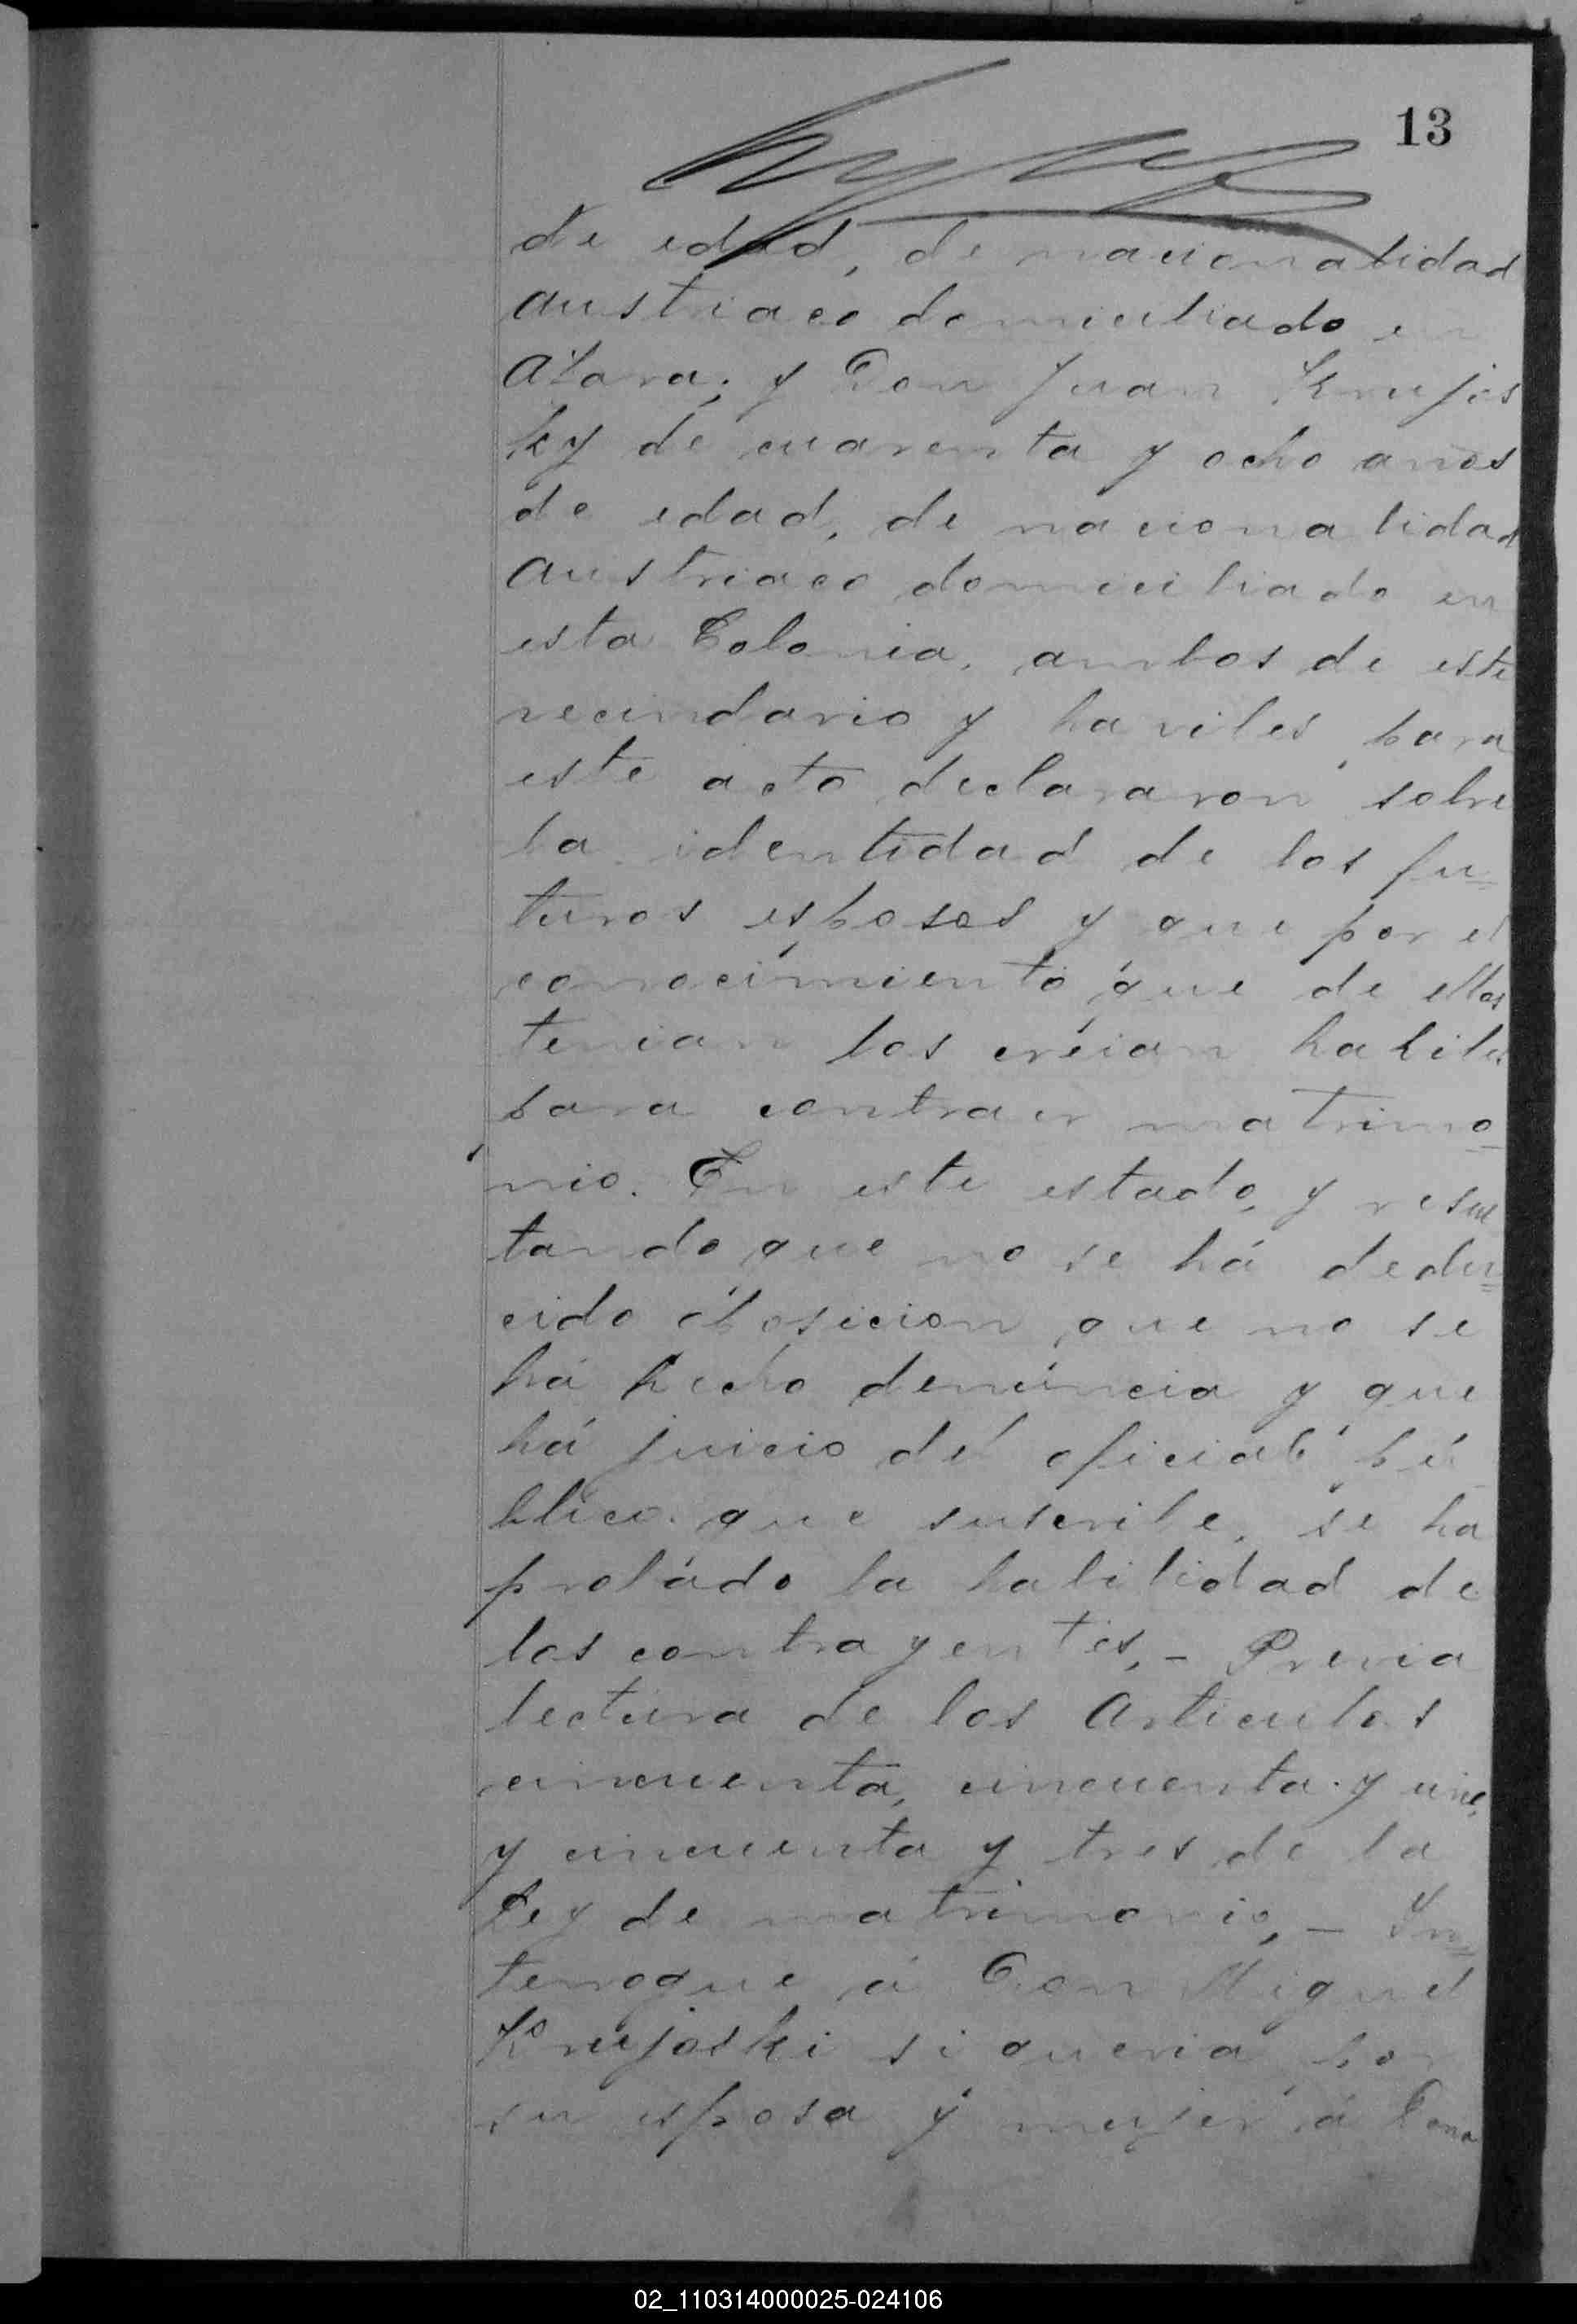 13
de edad, de nacionalidad
austriaco domiciliado en
Azara; y Don Juan Krujos
ky de cuarenta y ocho años
de edad, de nacionalidad
austriaco domiciliado en
esta Colonia, ambos de este
vecindario y haviles para
este acto declararon sobre
la identidad de los fu=
turos esposos y que por el
conocimiento que de ellos
tenian los creian habiles
para contraer matrimo=
nio. En este estado, y resul
tando que no se há dedu=
cido oposicion que no se
há hecho denúncia y que
há juicio del oficial pú
blico que suscribe, se ha
probádo la habilidad de
los contrayentes, - Previa
lectura de los Articulos
cincuenta, cincuenta y uno,
y cincuenta y tres de la
Ley de matrimonio, - In=
terrogue á Don Miguel
Krujoski si queria por
su esposa y mujer á Dona
02_110314000025-024106